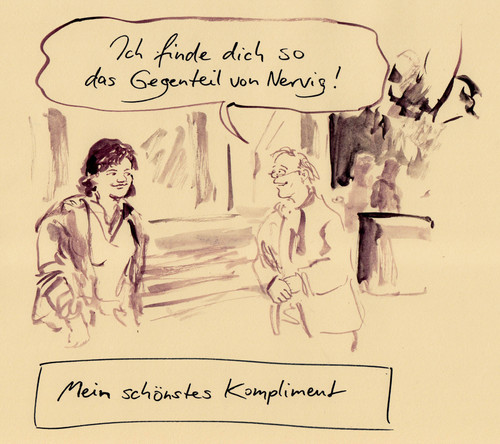 Ich finde dich so
das Gegenteil von Nervig!
Mein schönstes Kompliment